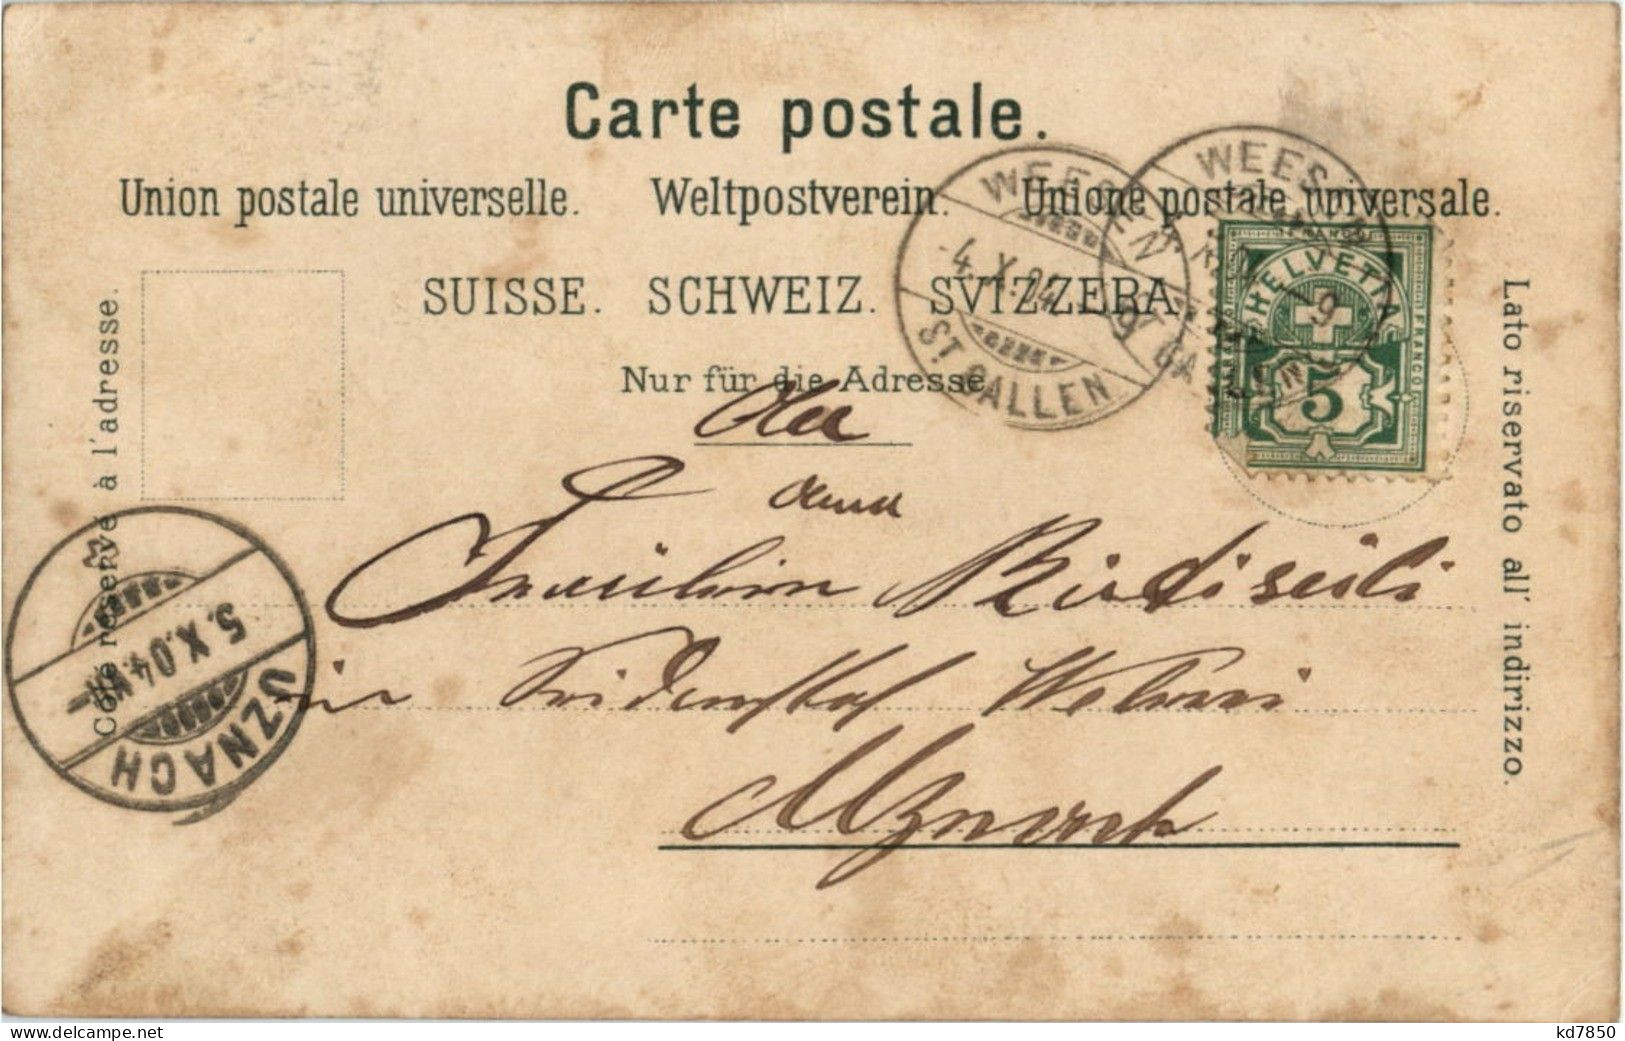 Carte postale.
Union postale universelle. Weltpostverein. Unione postale universale.
SUISSE. SCHWEIZ. SVIZZERA.
Nur für die Adresse
Côté réservé à l'adresse.
Lato riservato all' indirizzo.
WEESEN
-4.X.04 -9
ST. GALLEN
WEESEN
-9
HELVETIA
FRANCO
5
Fräulein
in
Uznach
5.X.04.VII-
UZNACH
delcampe.net
kd7850